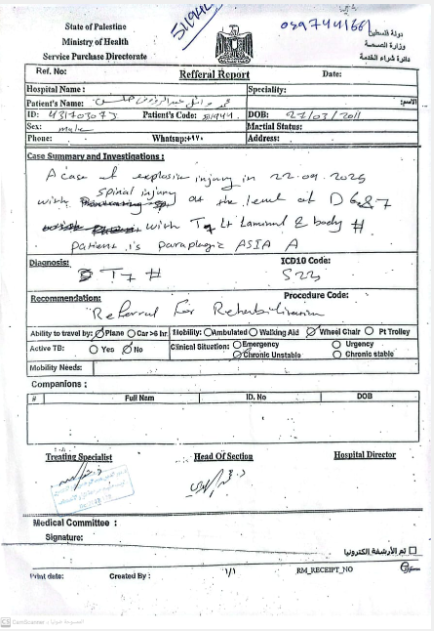 511944
0597441661
State of Palestine
Ministry of Health
Service Purchase Directorate
دولة فلسطين
وزارة الصحة
دائرة شراء الخدمة
Ref. No: Refferal Report Date:
Hospital Name : Speciality:
Patient's Name : الاسم:
ID: Patient's Code: 511944 DOB: 27/03/2011
Sex: male Martial Status:
Phone: Whatsup:+970 Address:
Case Summary and Investigations :
A case of explosive injury in 22.09.2025
with spinal injury at the level of D 6&7
with T7 Lt Laminal & body #
patient is paraplegic ASIA A
Diagnosis: ICD10 Code:
T7 # S22
Recommendation: Procedure Code:
Referral For Rehabilitation
Ability to travel by: Plane Car >6 hr Mobility: Ambulated Walking Aid Wheel Chair Pt Trolley
Active TB: Yes No Clinical Situation: Emergency Urgency
Chronic Unstable Chronic stable
Mobility Needs:
Companions :
# Full Nam ID. No DOB
Treating Specialist Head Of Section Hospital Director
Medical Committee :
Signature:
تم الأرشفة إلكترونيا
Print date: Created By : 1/1 RM_RECEIPT_NO
CS CamScanner